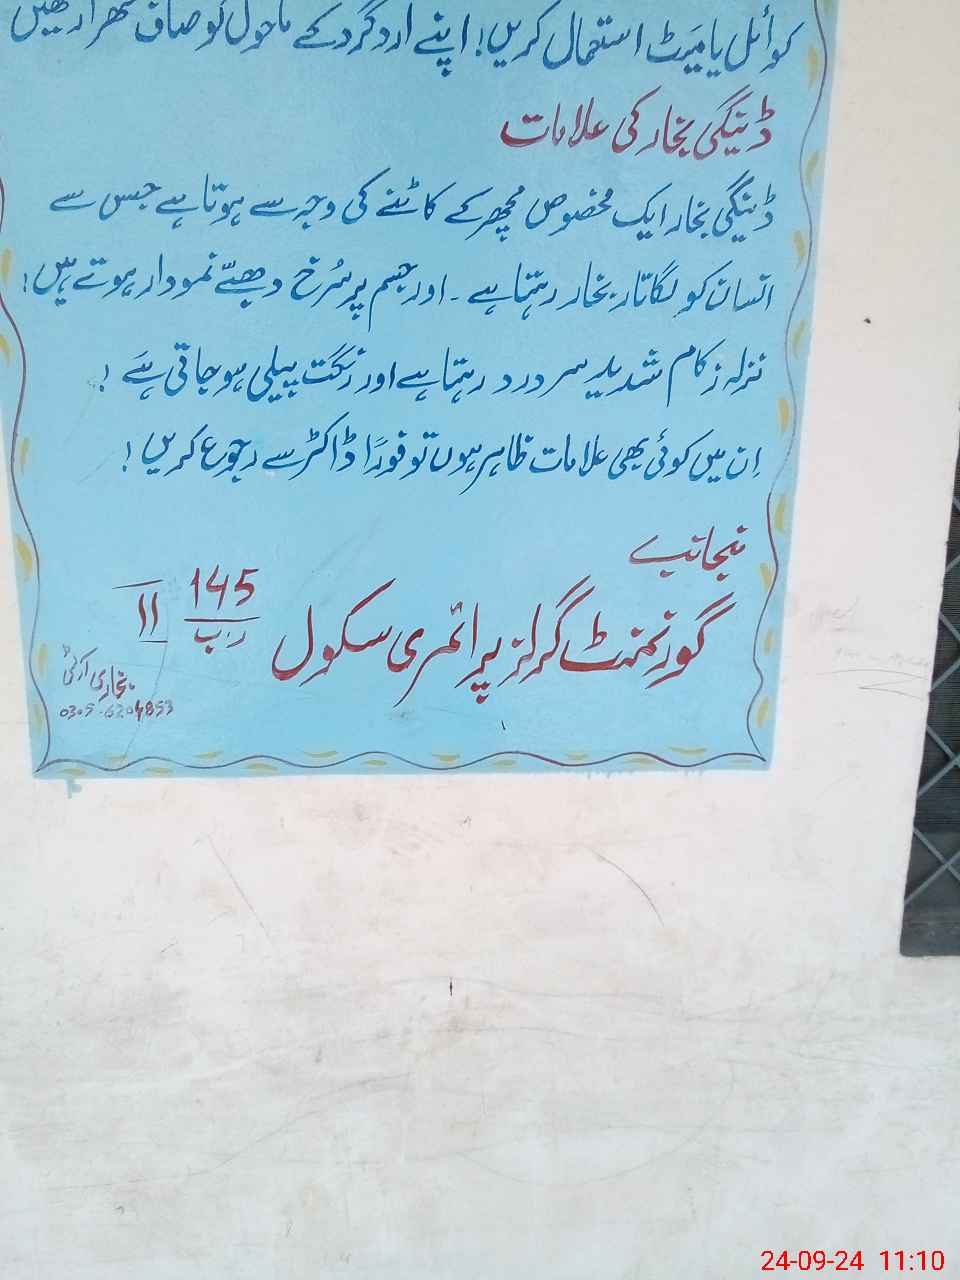 کوائل یا میٹ استعمال کریں! اپنے اردگرد کے ماحول کو صاف ستھرا رکھیں
ڈینگی بخار کی علامات
ڈینگی بخار ایک مخصوص مچھر کے کاٹنے کی وجہ سے ہوتا ہے جس سے
انسان کو لگاتار بخار رہتا ہے ۔ اور جسم پر سُرخ دھبّے نمودار ہوتے ہیں!
نزلہ زکام شدید سر درد رہتا ہے اور رنگت پیلی ہو جاتی ہے !
اِن میں کوئی بھی علامات ظاہر ہوں تو فوراً ڈاکٹر سے رجوع کریں !
منجانب
گورنمنٹ گرلز پرائمری سکول 145 ر۔ب II
بخاری آرٹ
0305-6204853
24-09-24 11:10